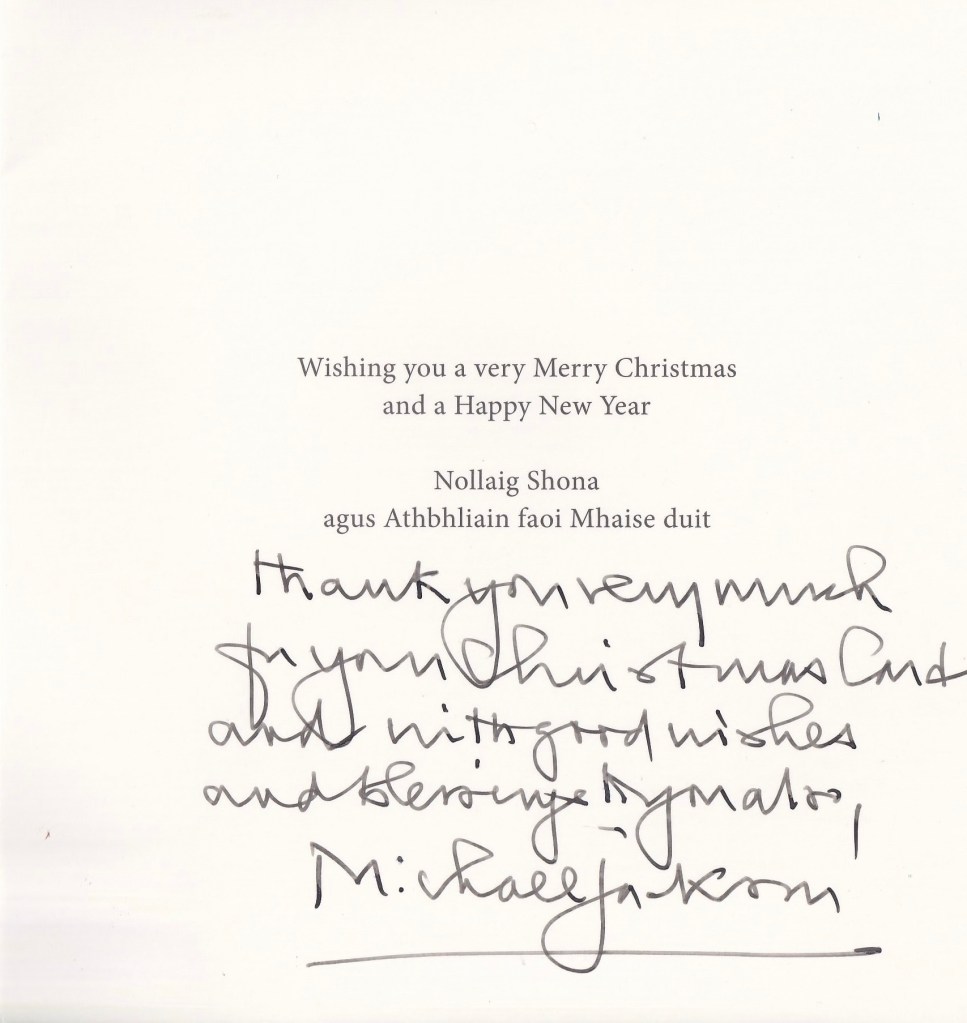 Wishing you a very Merry Christmas
and a Happy New Year
Nollaig Shona
agus Athbhliain faoi Mhaise duit
Thank you very much
for your Christmas Card
and with good wishes
and blessings to you also,
Michael Jackson